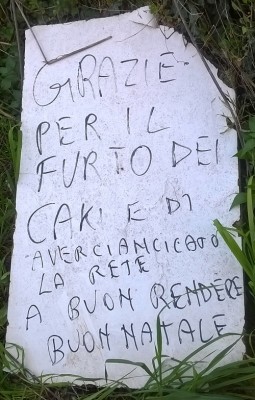 GRAZIE
PER IL
FURTO DEI
CAKI E DI
AVERCIANCICATO
LA RETE
A BUON RENDERE
BUON NATALE